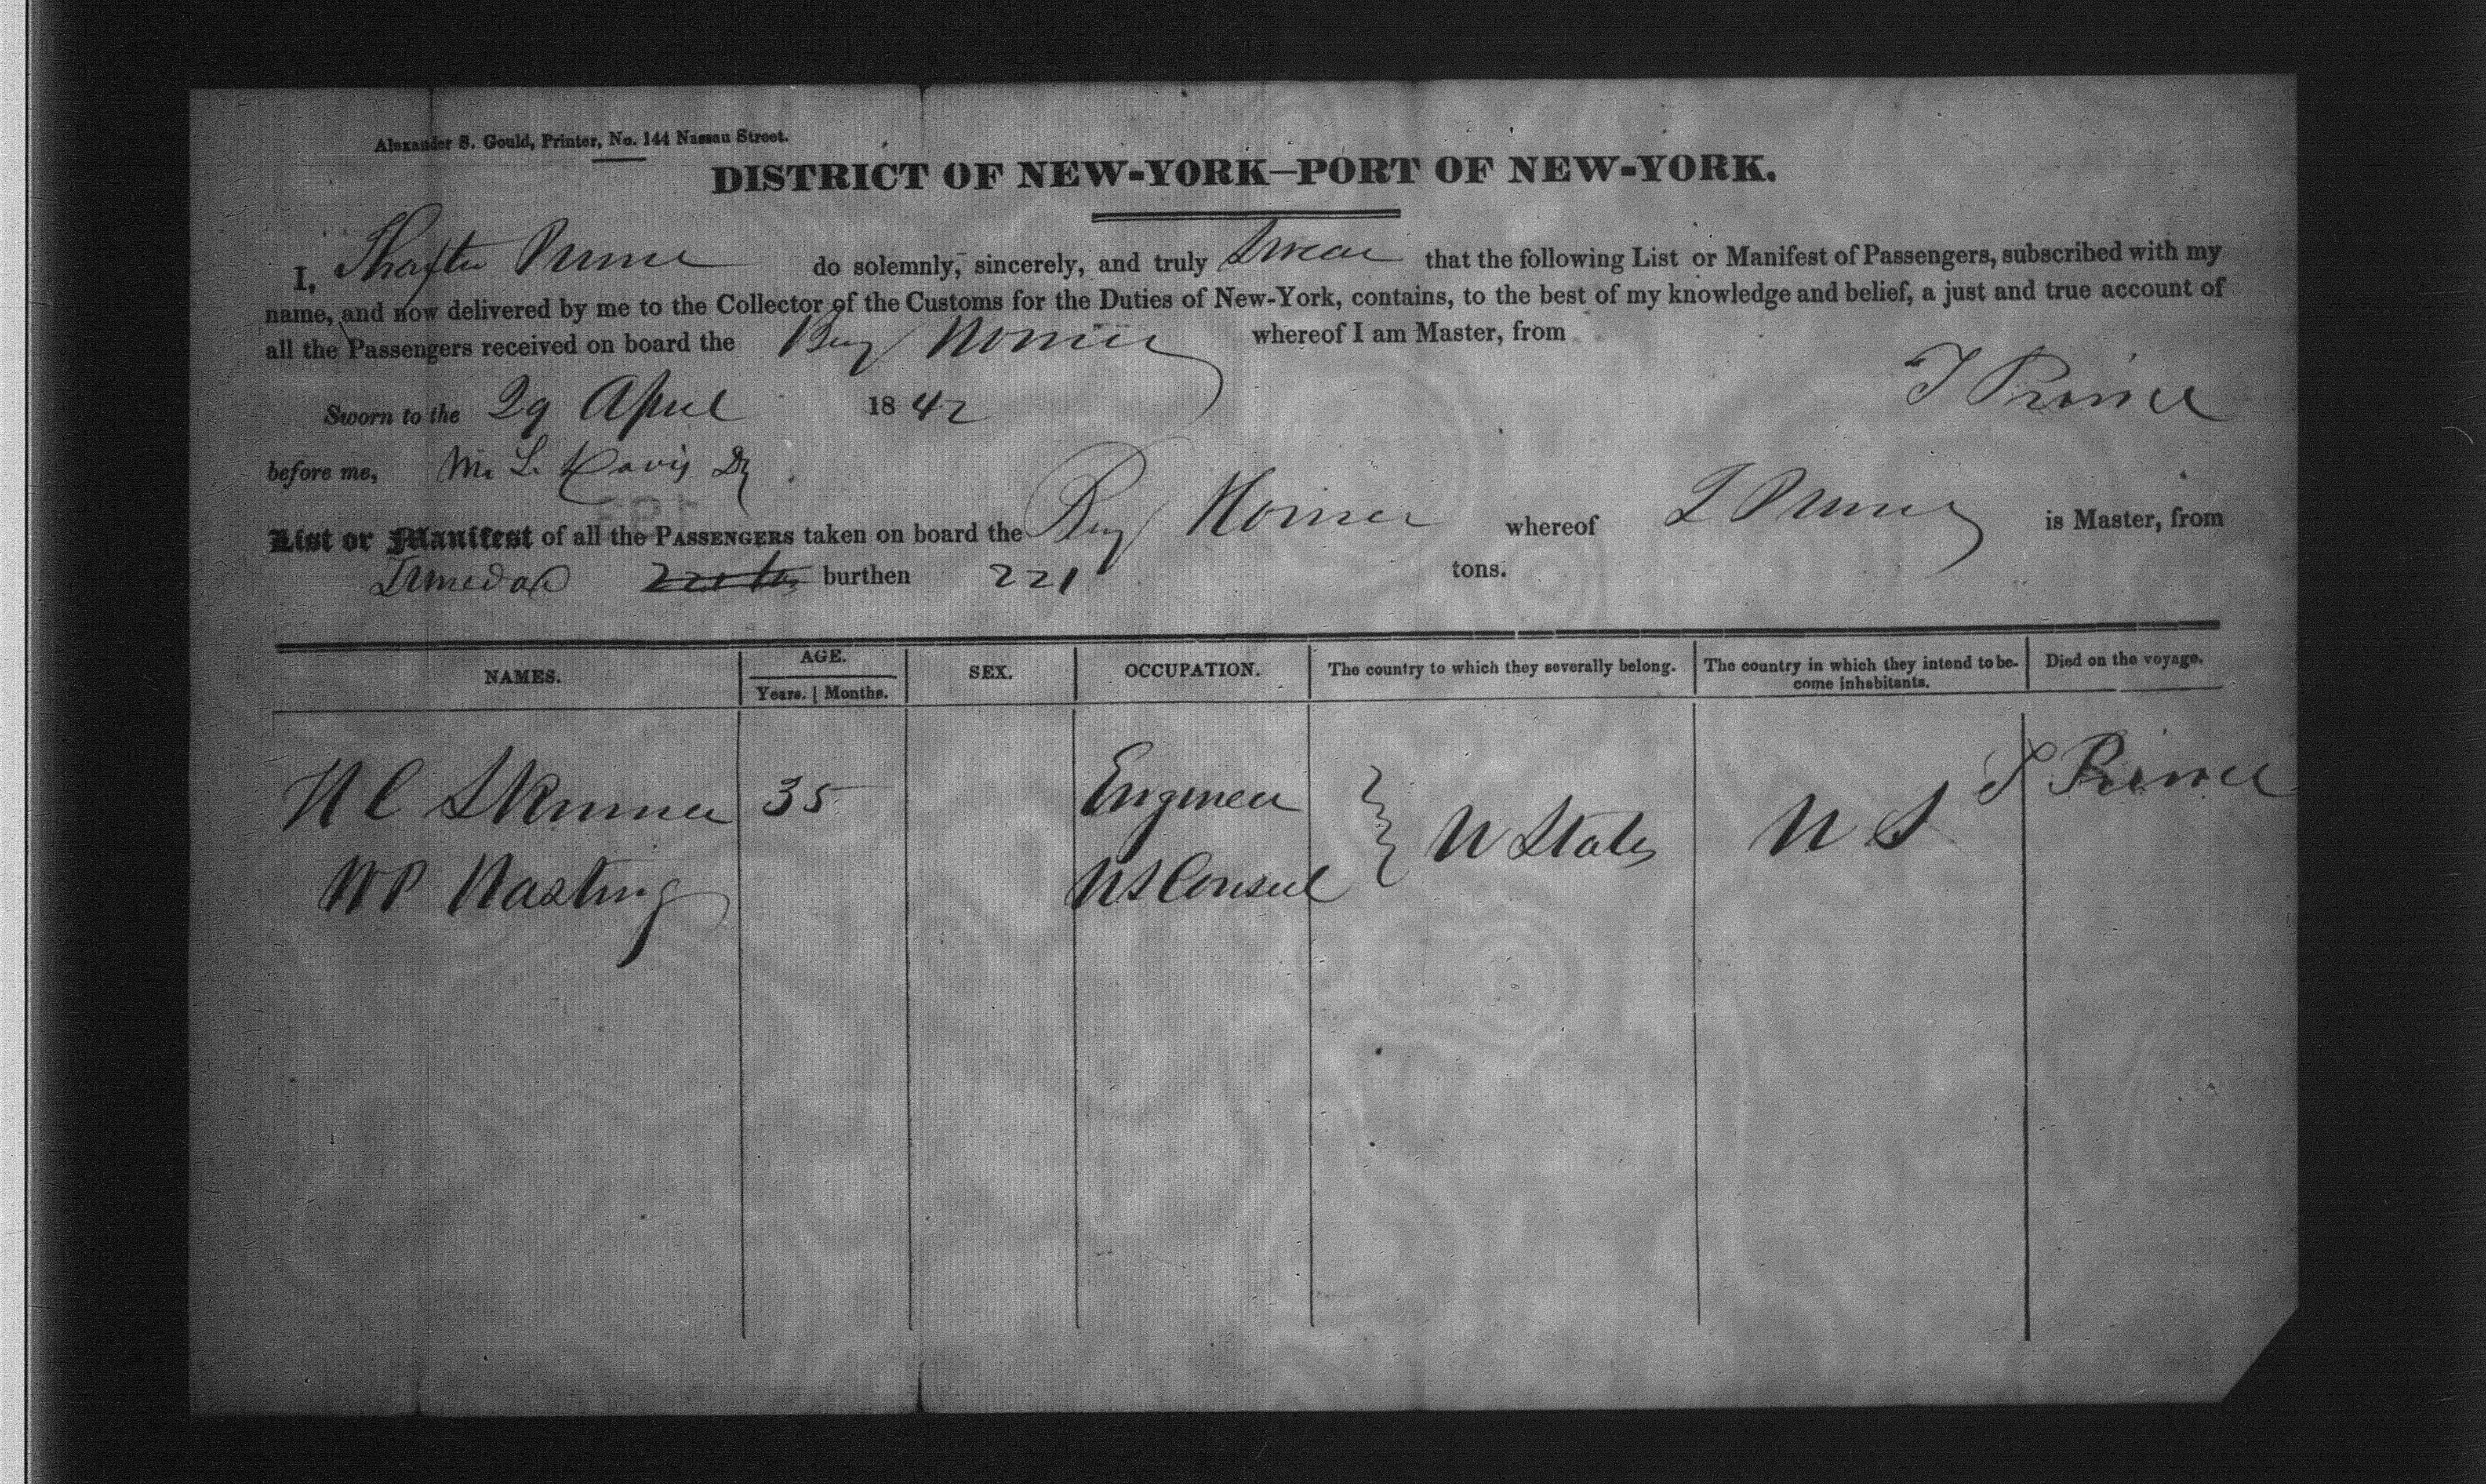 Alexander S. Gould, Printer, No. 144 Nassau Street.
DISTRICT OF NEW-YORK—PORT OF NEW-YORK.
I, Prince do solemnly, sincerely, and truly Swear that the following List or Manifest of Passengers, subscribed with my
name, and now delivered by me to the Collector of the Customs for the Duties of New-York, contains, to the best of my knowledge and belief, a just and true account of
all the Passengers received on board the Brig Homer whereof I am Master, from
T Prince
Sworn to the 29 April 1842
before me, M. L. Davis Dy
List or Manifest of all the PASSENGERS taken on board the Brig Homer whereof T Prince is Master, from
Trinidad burthen 221 tons.
NAMES. AGE. Years. Months. SEX. OCCUPATION. The country to which they severally belong. The country in which they intend to be-
come inhabitants. Died on the voyage.
H C Skinner 35 Engineer U States U S T Prince
W P Hastings U S Consul